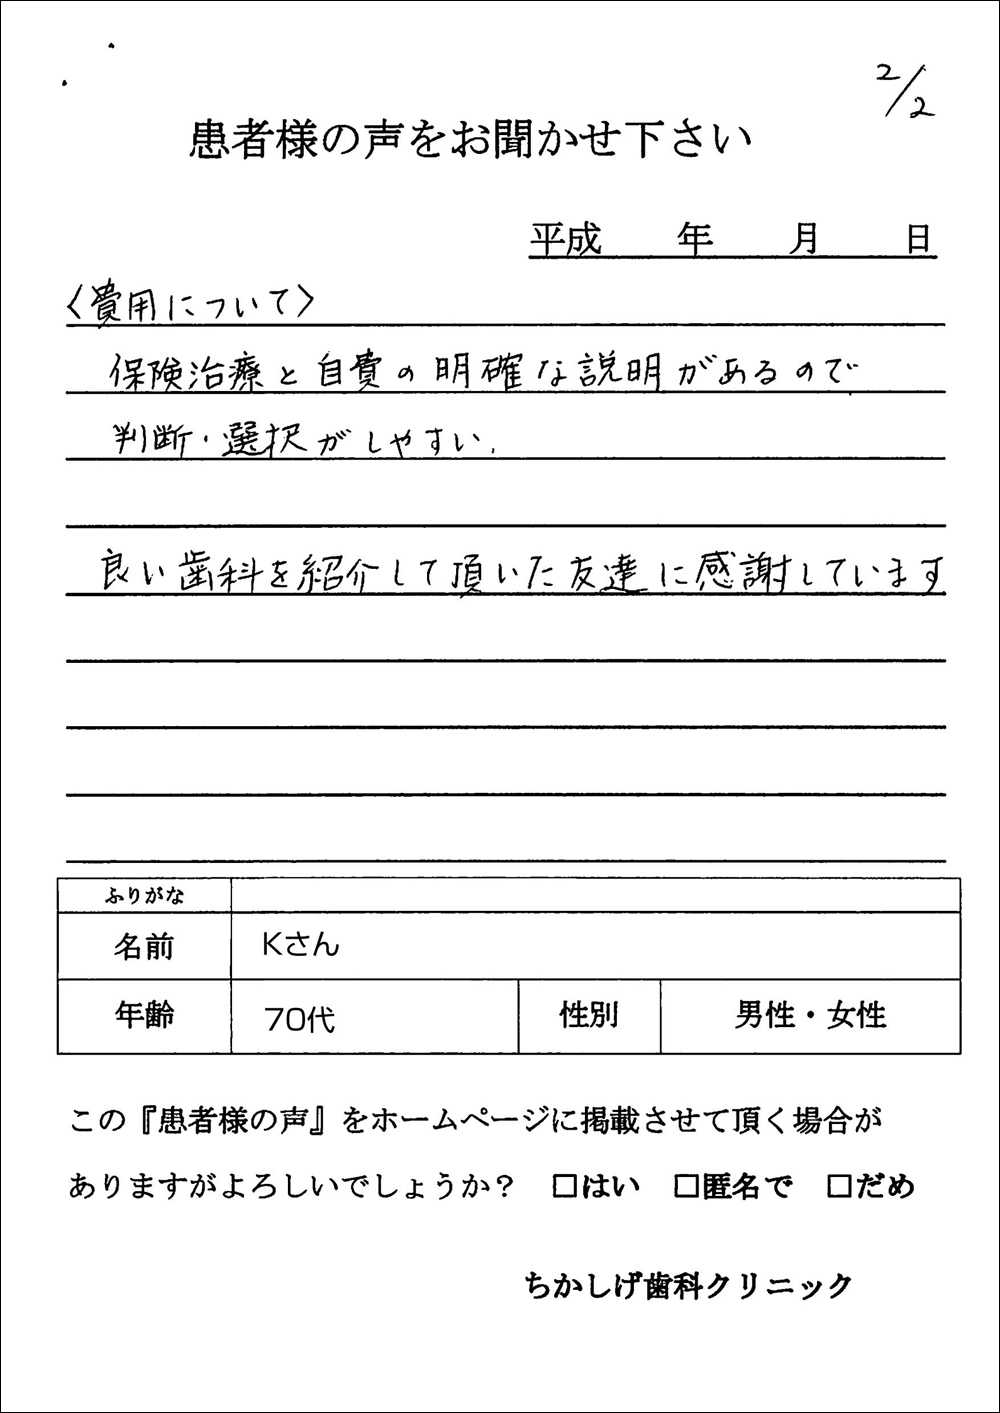 2/2
患者様の声をお聞かせ下さい
平成 年 月 日
〈費用について〉
保険治療と自費の明確な説明があるので
判断・選択がしやすい.
良い歯科を紹介して頂いた友達に感謝しています
ふりがな
名前 Kさん
年齢 70代 性別 男性・女性
この『患者様の声』をホームページに掲載させて頂く場合が
ありますがよろしいでしょうか？ □はい □匿名で □だめ
ちかしげ歯科クリニック